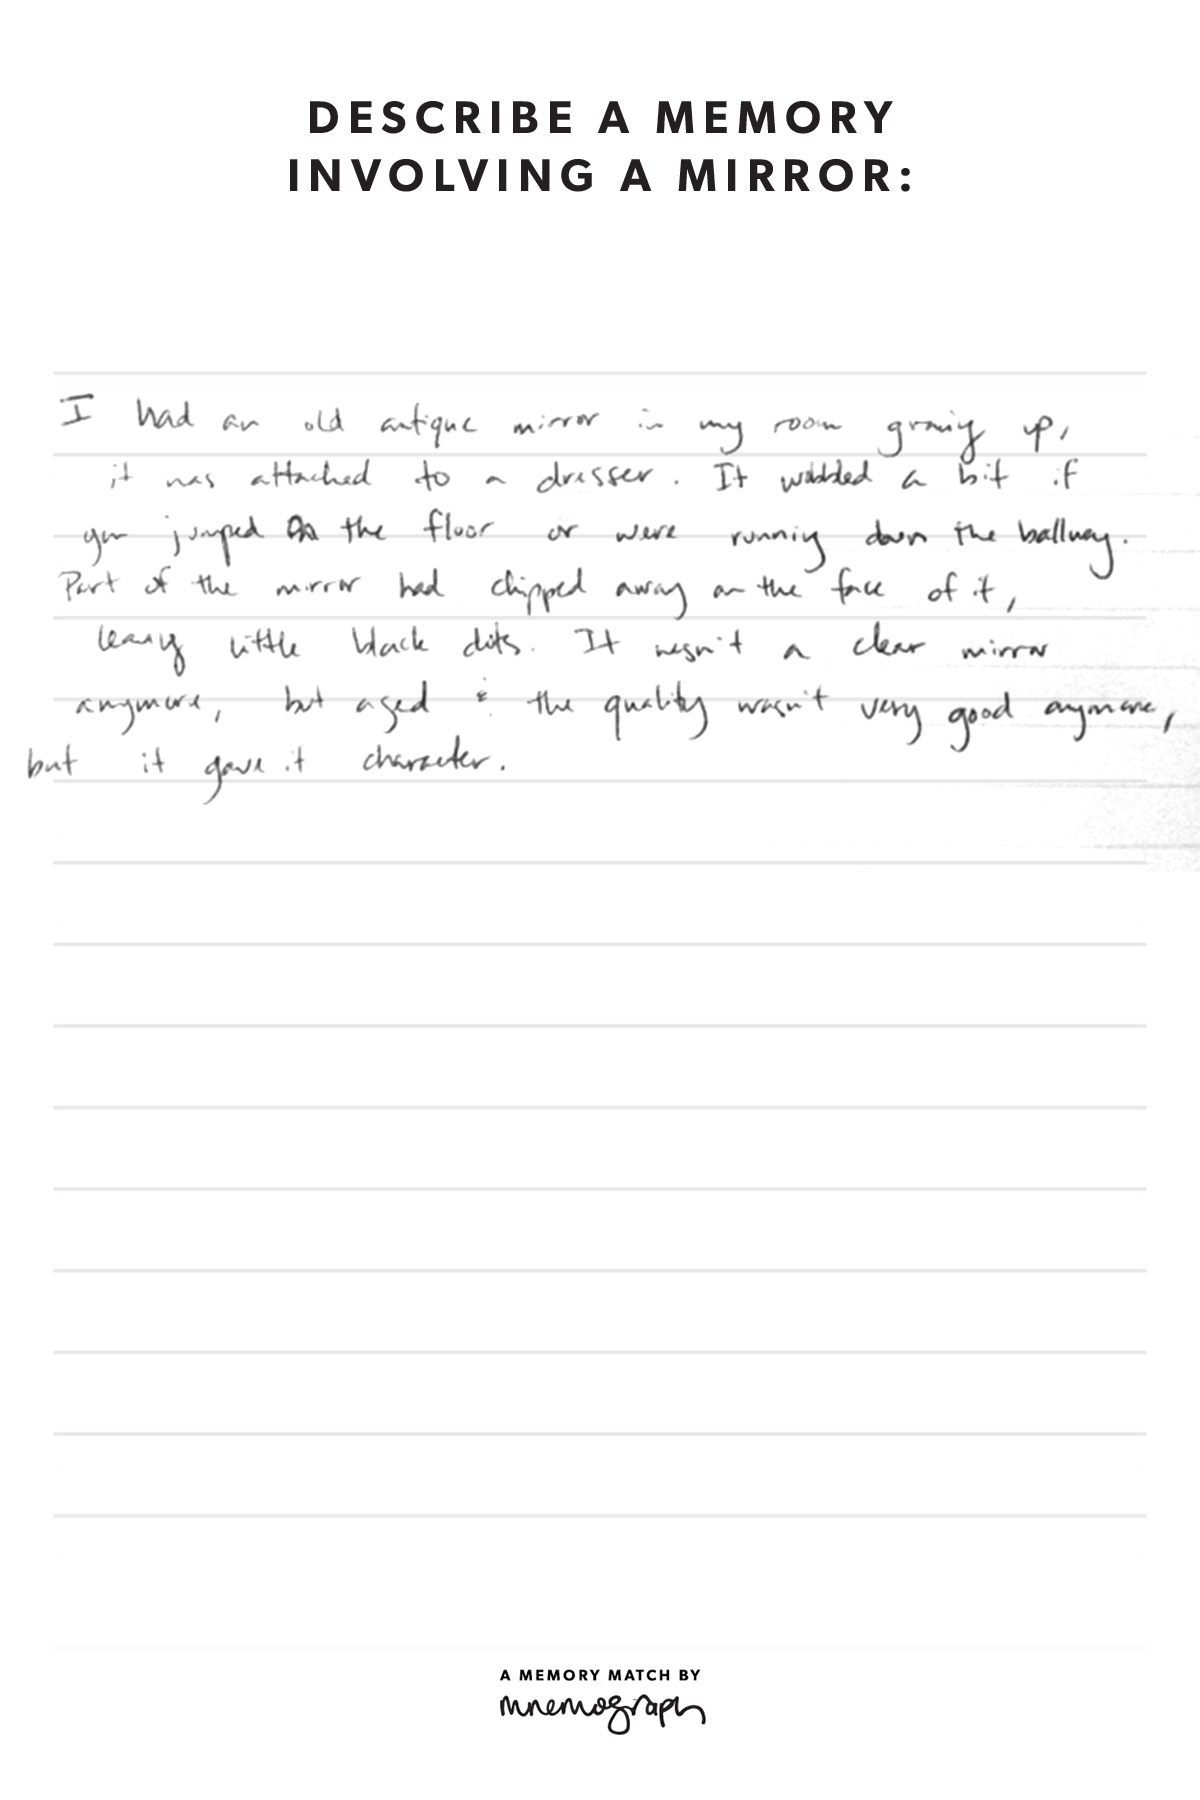 DESCRIBE A MEMORY
INVOLVING A MIRROR:
I had an old antique mirror in my room growing up,
it was attached to a dresser. It wobbled a bit if
you jumped on the floor or were running down the hallway.
Part of the mirror had chipped away on the face of it,
leaving little black dots. It wasn't a clear mirror
anymore, but aged & the quality wasn't very good anymore,
but it gave it character.
A MEMORY MATCH BY
mnemograph